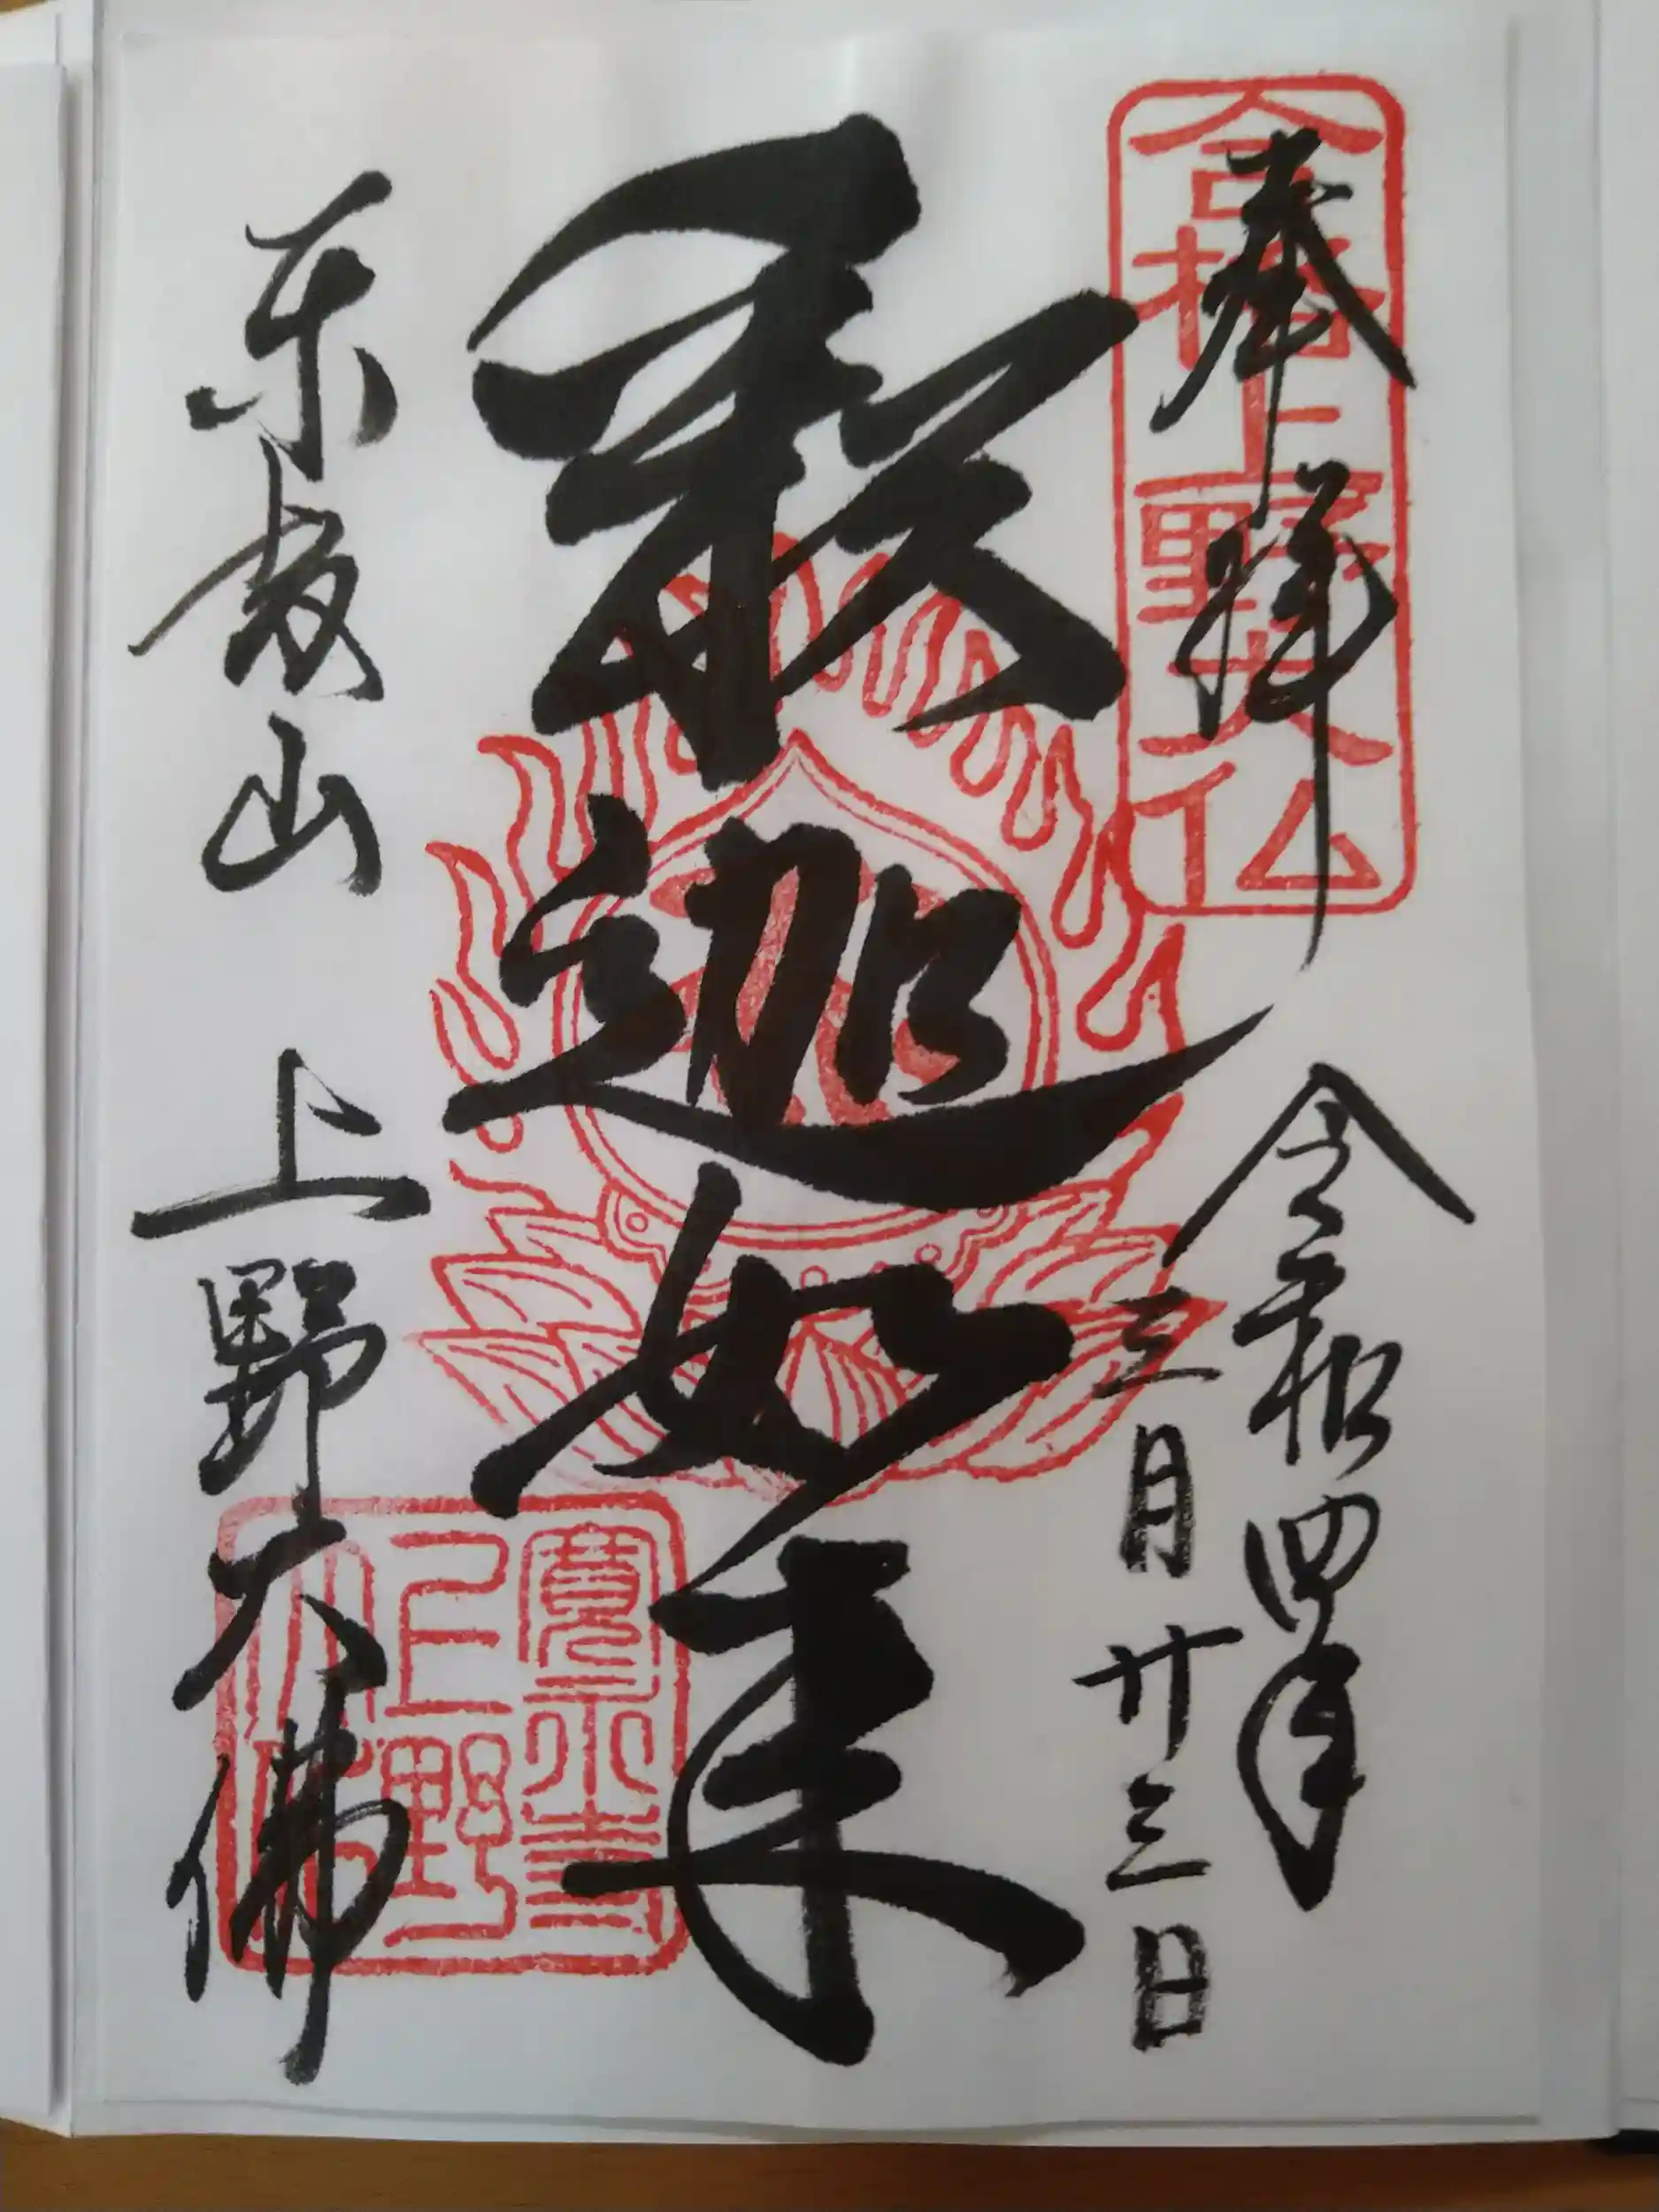 奉拝
合格上野大仏
令和四年
三月廿三日
釈迦如来
東叡山 上野大佛
寛永寺
上野
大仏